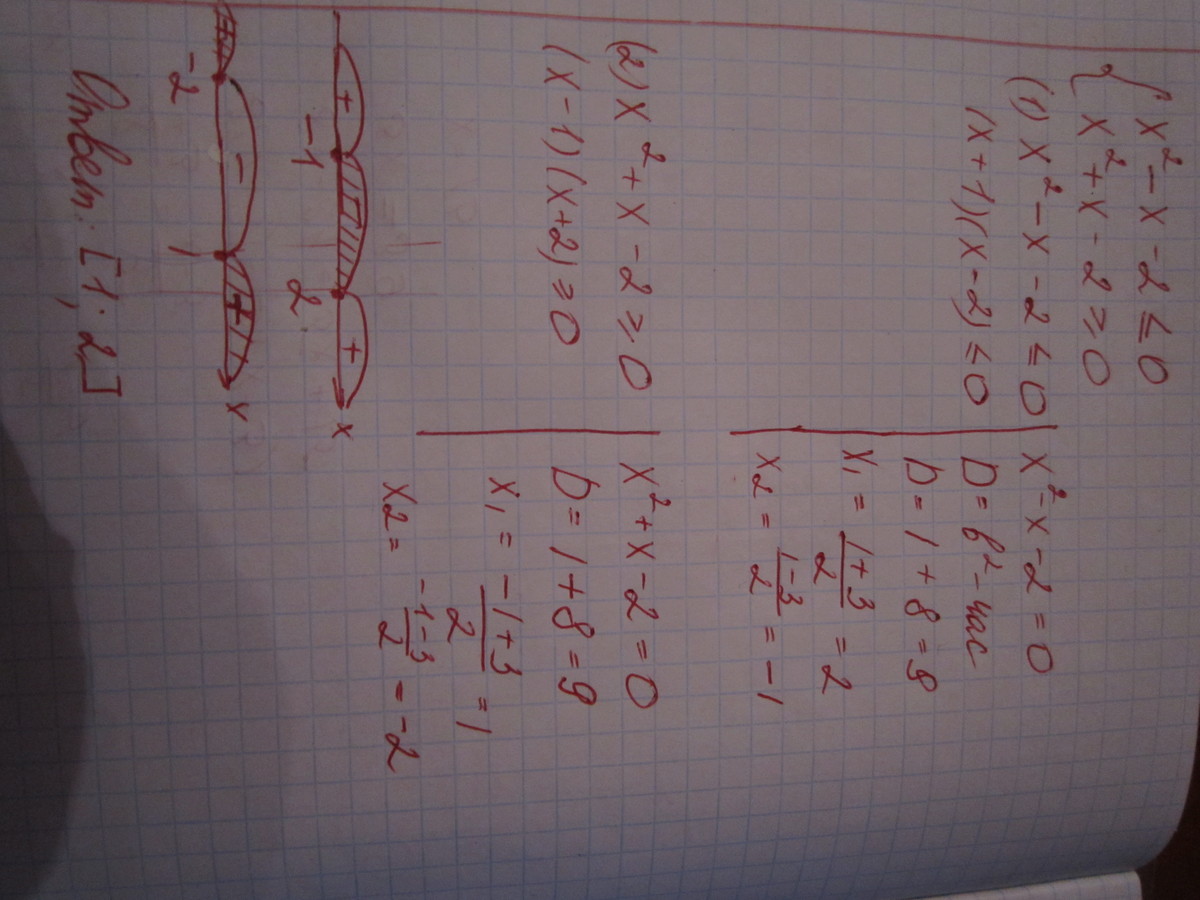 { x² - x - 2 ≤ 0
x² + x - 2 ≥ 0
(1) x² - x - 2 ≤ 0
(x + 1)(x - 2) ≤ 0
x² - x - 2 = 0
D = b² - 4ac
D = 1 + 8 = 9
x₁ = (1+3)/2 = 2
x₂ = (1-3)/2 = -1
(2) x² + x - 2 ≥ 0
(x - 1)(x + 2) ≥ 0
x² + x - 2 = 0
D = 1 + 8 = 9
x₁ = (-1+3)/2 = 1
x₂ = (-1-3)/2 = -2
+ +
-1 2 x
- +
-2 1 x
Ответ: [1; 2]